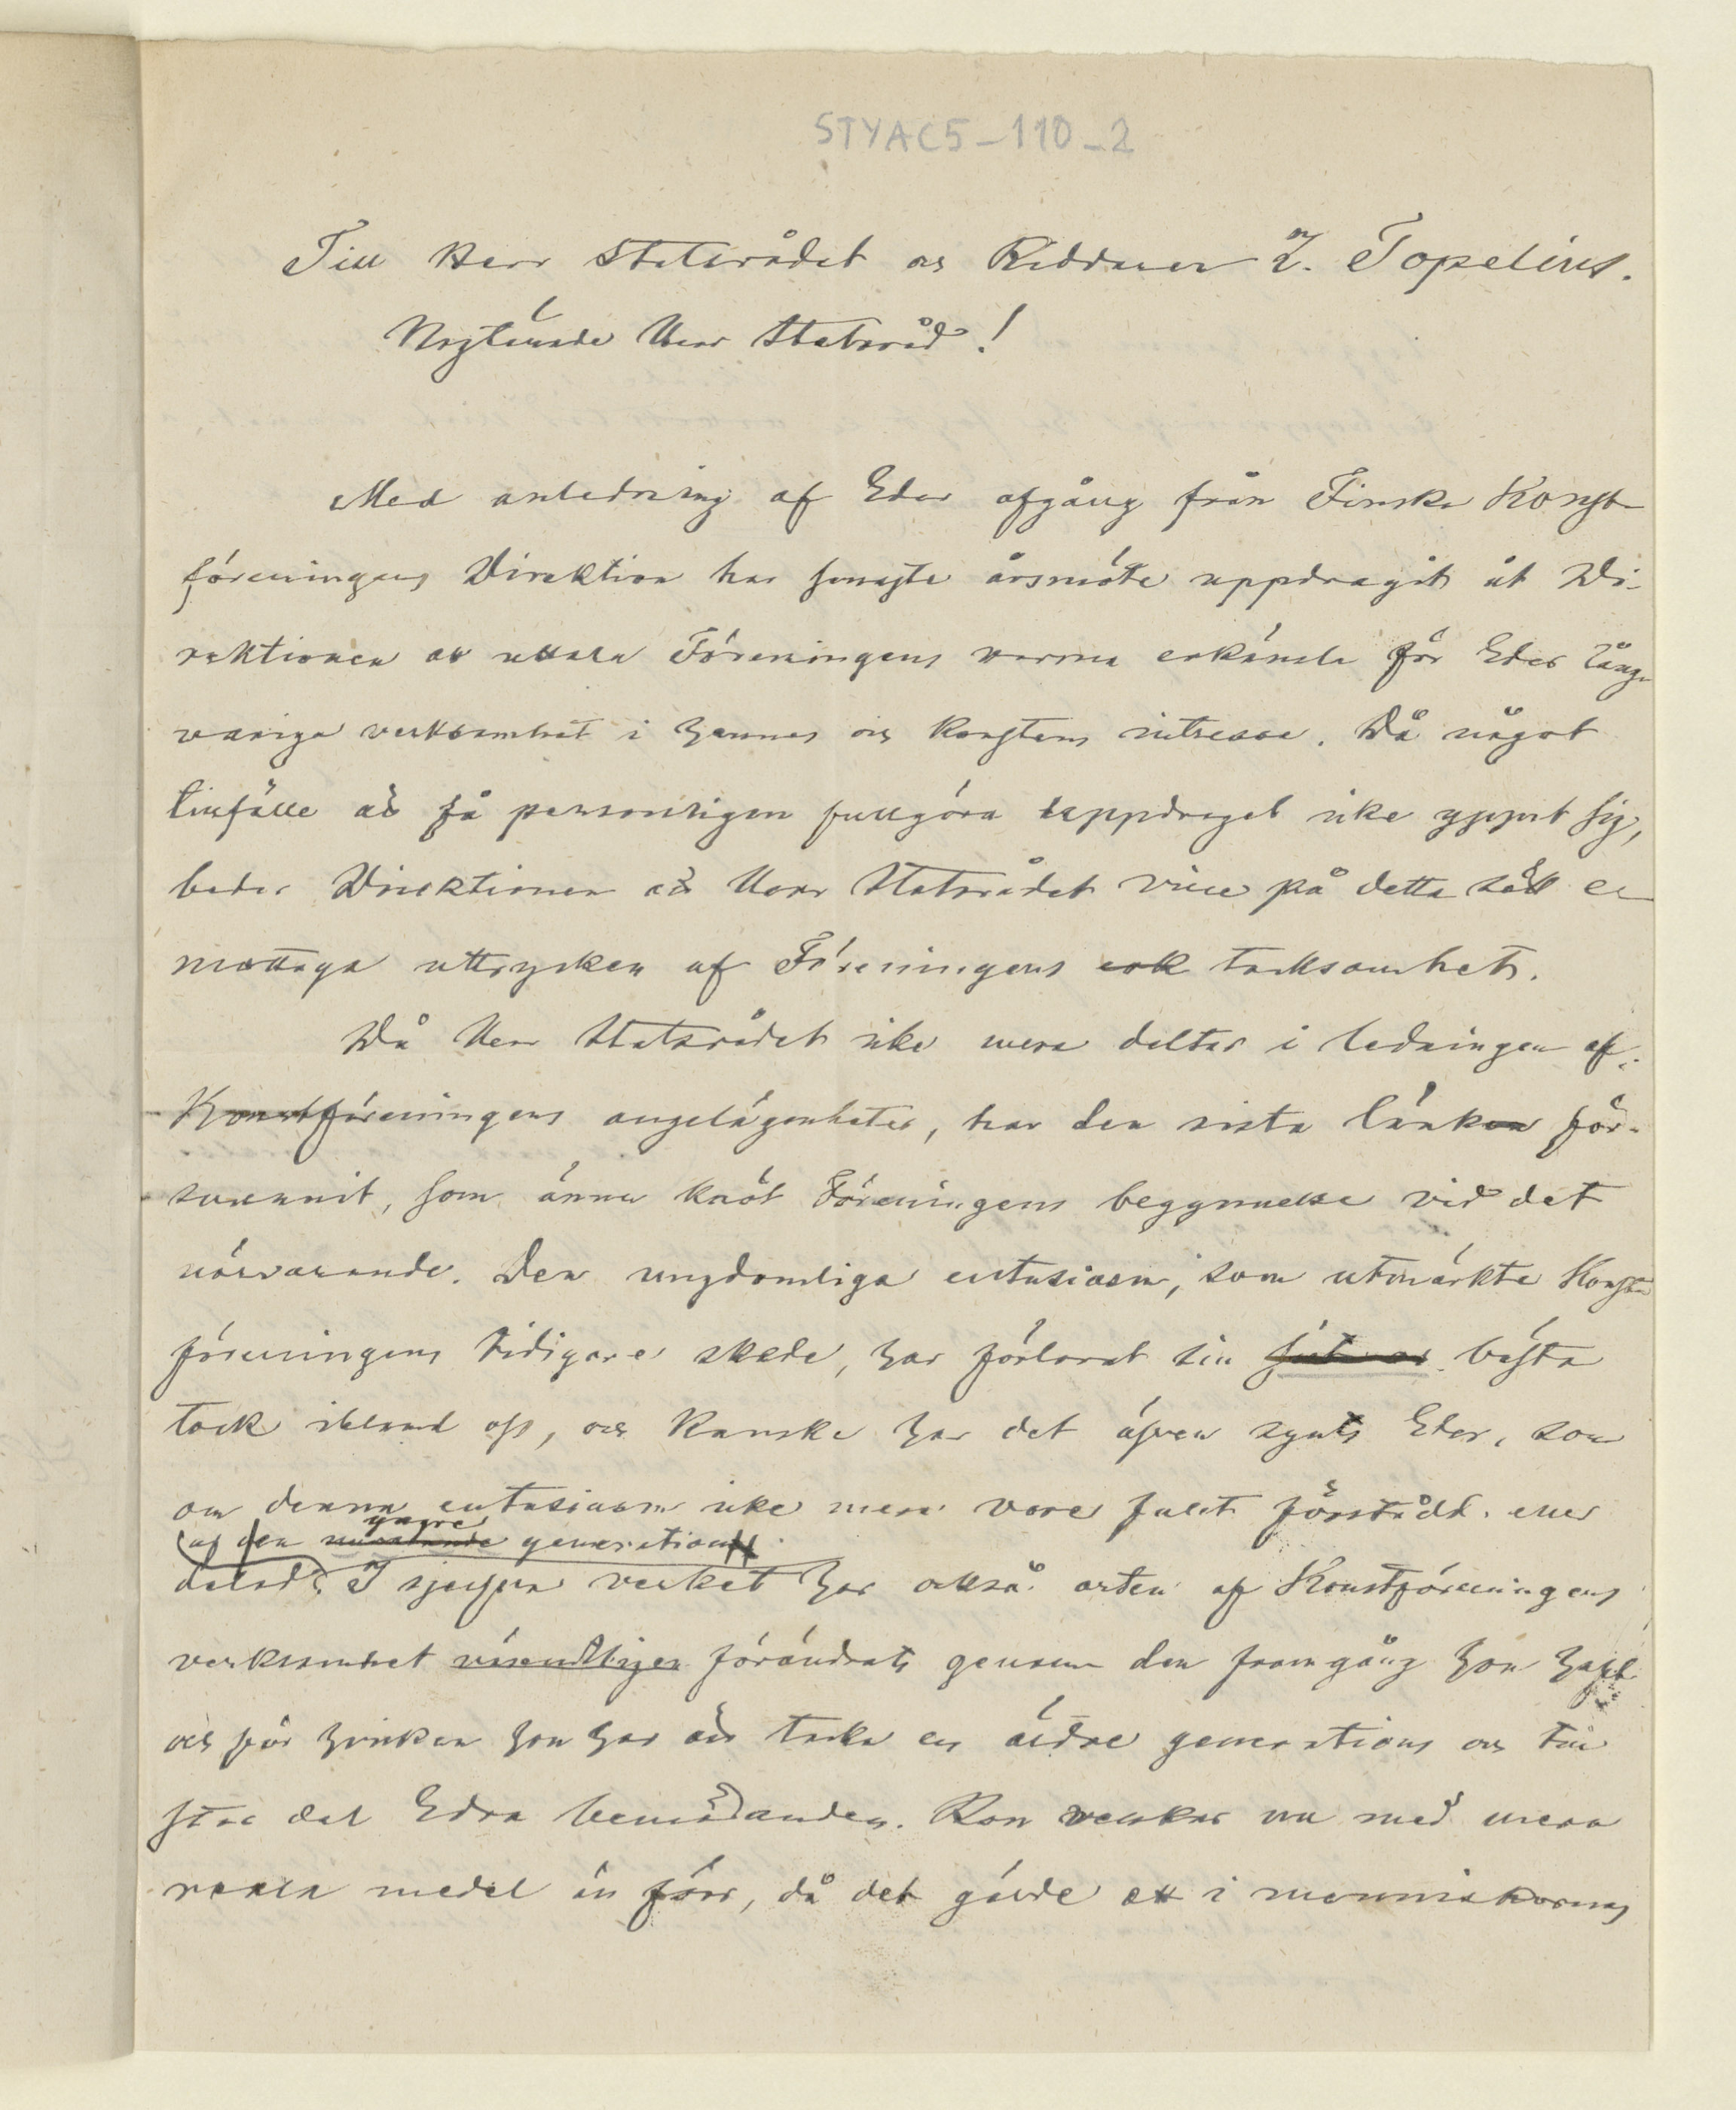 STYAC5-110-2
Till Herr Statsrådet och Riddaren Z. Topelius.
Högtärade Herr Statsråd!
Med anledning af Eder afgång från Finska Konst-
föreningens Direktion har senaste årsmöte uppdragit åt Di-
rektionen att uttala Föreningens varma erkänsla för Eder lång-
variga verksamhet i hennes och konstens intresse. Då något
tillfälle att få personligen fullgöra uppdraget icke yppat sig,
beder Direktionen att Herr Statsrådet ville på detta sätt e
mottaga uttrycken af Föreningens erk tacksamhet.
Då Herr Statsrådet icke mera deltar i ledningen af
Konstföreningens angelägenheter, har den sista länken för-
svunnit, som ännu knöt Föreningens begynnelse vid det
närvarande. Den ungdomliga entusiasm, som utmärkte Konst-
föreningens tidigare skede, har förlorat sin bästa
tolk ibland oss, och kanske har det äfven synts Eder, som
om denna entusiasm icke mera vore fullt förstådd eller
yngre
af den generation
delad. I sjelfva verket har också arten af Konstföreningens
verksamhet väsendtligen förändrats genom den framgång hon haft
och för hvilken hon har att tacka en äldre generations och till
stor del Edra bemödanden. Hon verkar nu med mera
reala medel än förr, då det gälde att i menniskornas